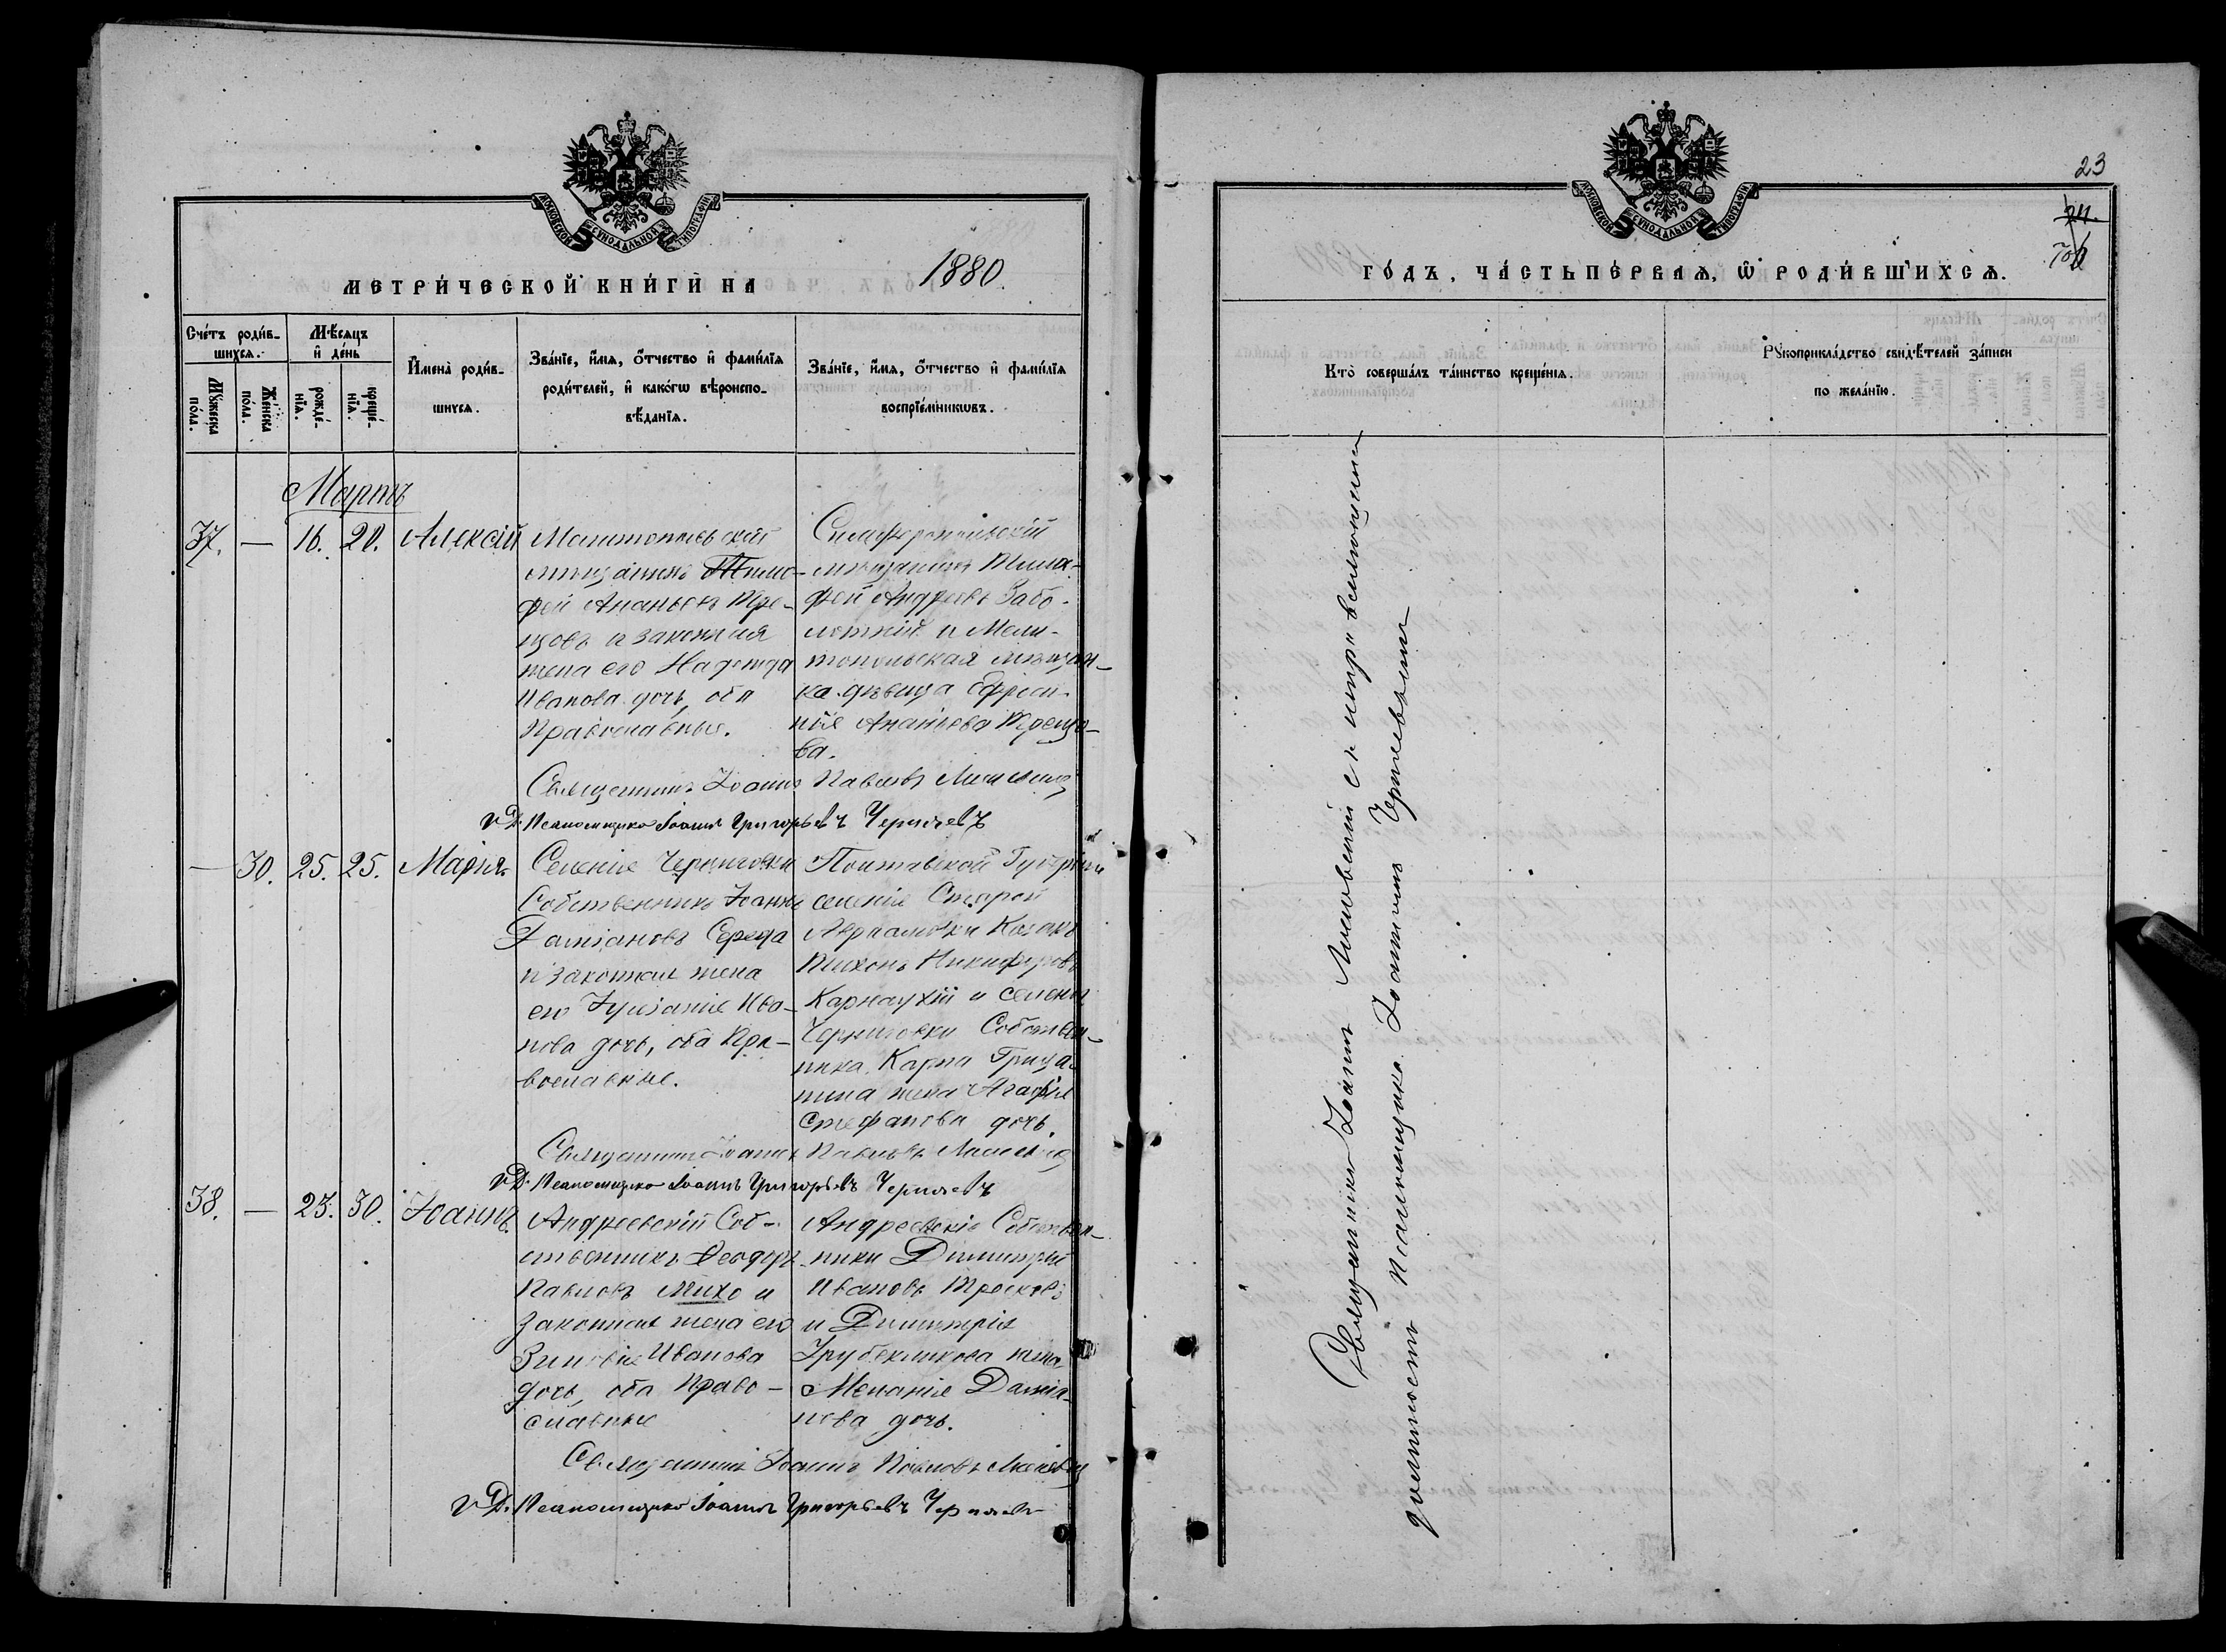 МОСКОВСКОЙ СѴНОДАЛЬНОЙ ТИПОГРАФІИ
МЕТРИЧЕСКОЙ КНИГИ НА 1880.
Счетъ родив-
шихся.
Мѣсяцъ
и день
Мужеска
пола.
Женска
пола.
рожде-
нія.
креще-
нія.
Имена родив-
шихся.
Званіе, имя, отчество и фамилія
родителей, и какогѡ вѣроиспо-
вѣданія.
Званіе, имя, отчество и фамилія
воспріемникѡвъ.
Мартъ
37. — 16. 20. Алексій
Мелитопольскій
мѣщанинъ Тимо-
фей Ананьевъ Тре-
щовъ и законная
жена его Надежда
Иванова дочь, оба
Православные.
Симферопольскій
мѣщанинъ Тимо-
фей Андреевъ Забо-
лотній и Мели-
топольская мѣщан-
ка девица Ефроси-
нія Ананьева Треще-
ва.
Священникъ Іоаннъ Павловъ
И. Д. Псаломщика Іоаннъ Григорьевъ Черняевъ
— 30. 25. 25. Марія.
Селенія Черниговки
Собственникъ Іоаннъ
Даміановъ Середа
и законная жена
его Іуліанія Ива-
нова дочь, оба Пра-
вославные.
Полтавской Губерніи
селенія Старой
Козакъ
Тихонъ Никифоровъ
Карнаухій и селенія
Черниговки Собствен-
ника Карпа Грица-
жена Агафія
Стефанова дочь.
Священникъ Іоаннъ Павловъ
И. Д. Псаломщика Іоаннъ Григорьевъ Черняевъ
38. — 23. 30. Іоаннъ.
Андреевскій Соб-
ственникъ Феодоръ
Павловъ Михо и
законная жена его
Зиновія Иванова
дочь, оба Право-
славные
Андреевскіе Собствен-
ники Димитрій
Ивановъ Тресковъ
и Димитрія
Трубекликова жена
Меланія Даміа-
нова дочь.
Священникъ Іоаннъ Павловъ
И. Д. Псаломщика Іоаннъ Григорьевъ Черняевъ
23
24.
МОСКОВСКОЙ СѴНОДАЛЬНОЙ ТИПОГРАФІИ
ГОДЪ, ЧАСТЬ ПЕРВАЯ, Ѡ РОДИВШИХСЯ.
Кто совершалъ таинство крещенія.
Рукоприкладство свидѣтелей записи
по желанію.
Священникъ Іоаннъ съ исправляющимъ
должность Псаломщика Іоанномъ Черняевымъ